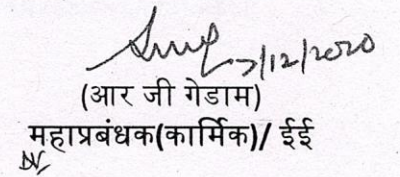 7/12/2020
(आर जी गेडाम)
महाप्रबंधक(कार्मिक)/ ईई